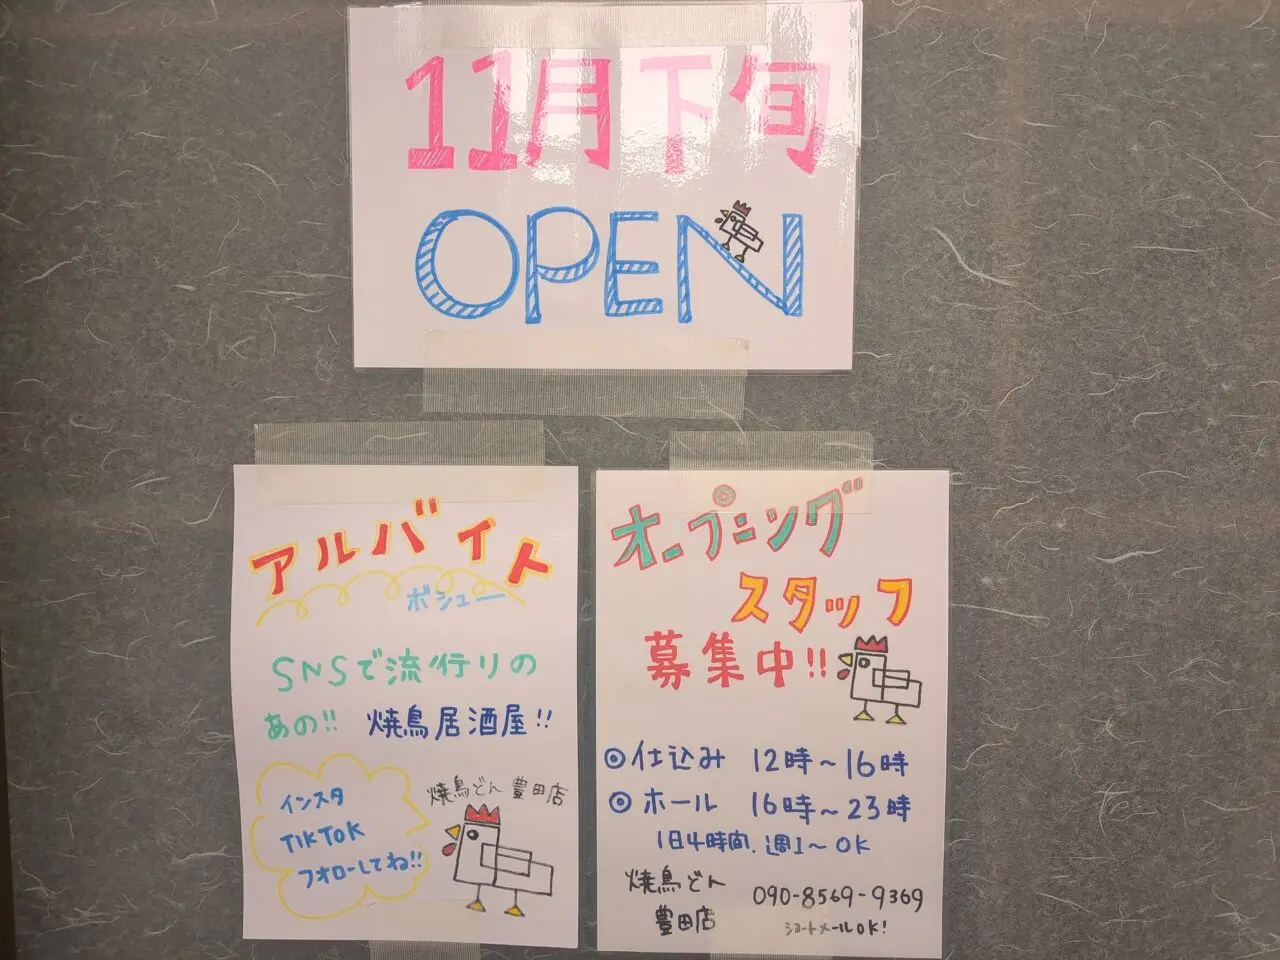 11月下旬
OPEN
アルバイト
ボシュー
SNSで流行りの
あの!! 焼鳥居酒屋!!
インスタ
TIKTOK
フォローしてね!!
焼鳥どん 豊田店
オープニング
スタッフ
募集中!!
◎仕込み 12時~16時
◎ホール 16時~23時
1日4時間、週1~OK
焼鳥どん
豊田店
090-8569-9369
ショートメールOK!